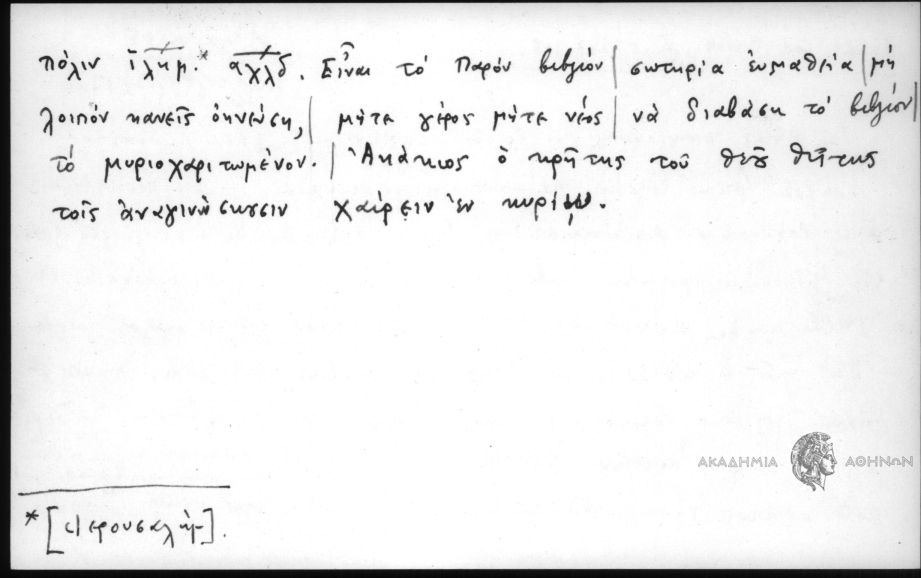 πόλιν ἰλημ.* αχλδ. Εἶναι τὸ παρὸν βιβλίον | σωτηρία εὐμαθεία | μὴ
λοιπόν κανεῖς ὀκνεύση, | μήτε γέρος μήτε νέος | νὰ διαβάση τὸ βιβλίον |
τὸ μυριοχαριτωμένον. | Ἀκάκιος ὁ κρῆτης τοῦ θεοῦ θύτης
τοῖς ἀναγινώσκουσιν χαίρειν ἐν κυρίῳ.
ΑΚΑΔΗΜΙΑ ΑΘΗΝΩΝ
* [Ἱερουσαλὴμ].